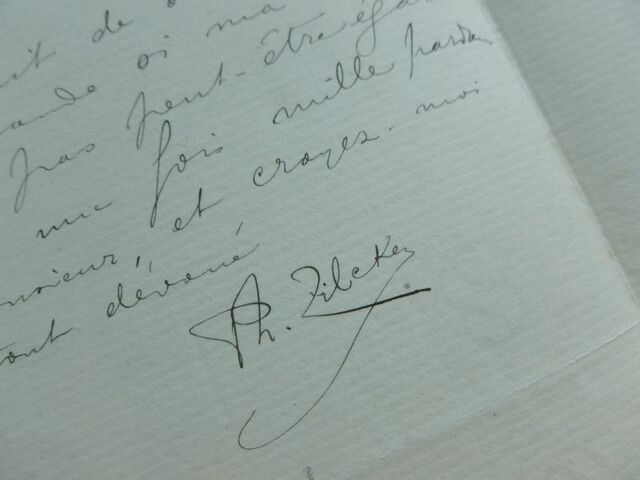 de
ande si ma
pas peut-être éga
une fois mille pardon
nsieur, et croyez-moi
tout dévoué
Ph. Zilcken